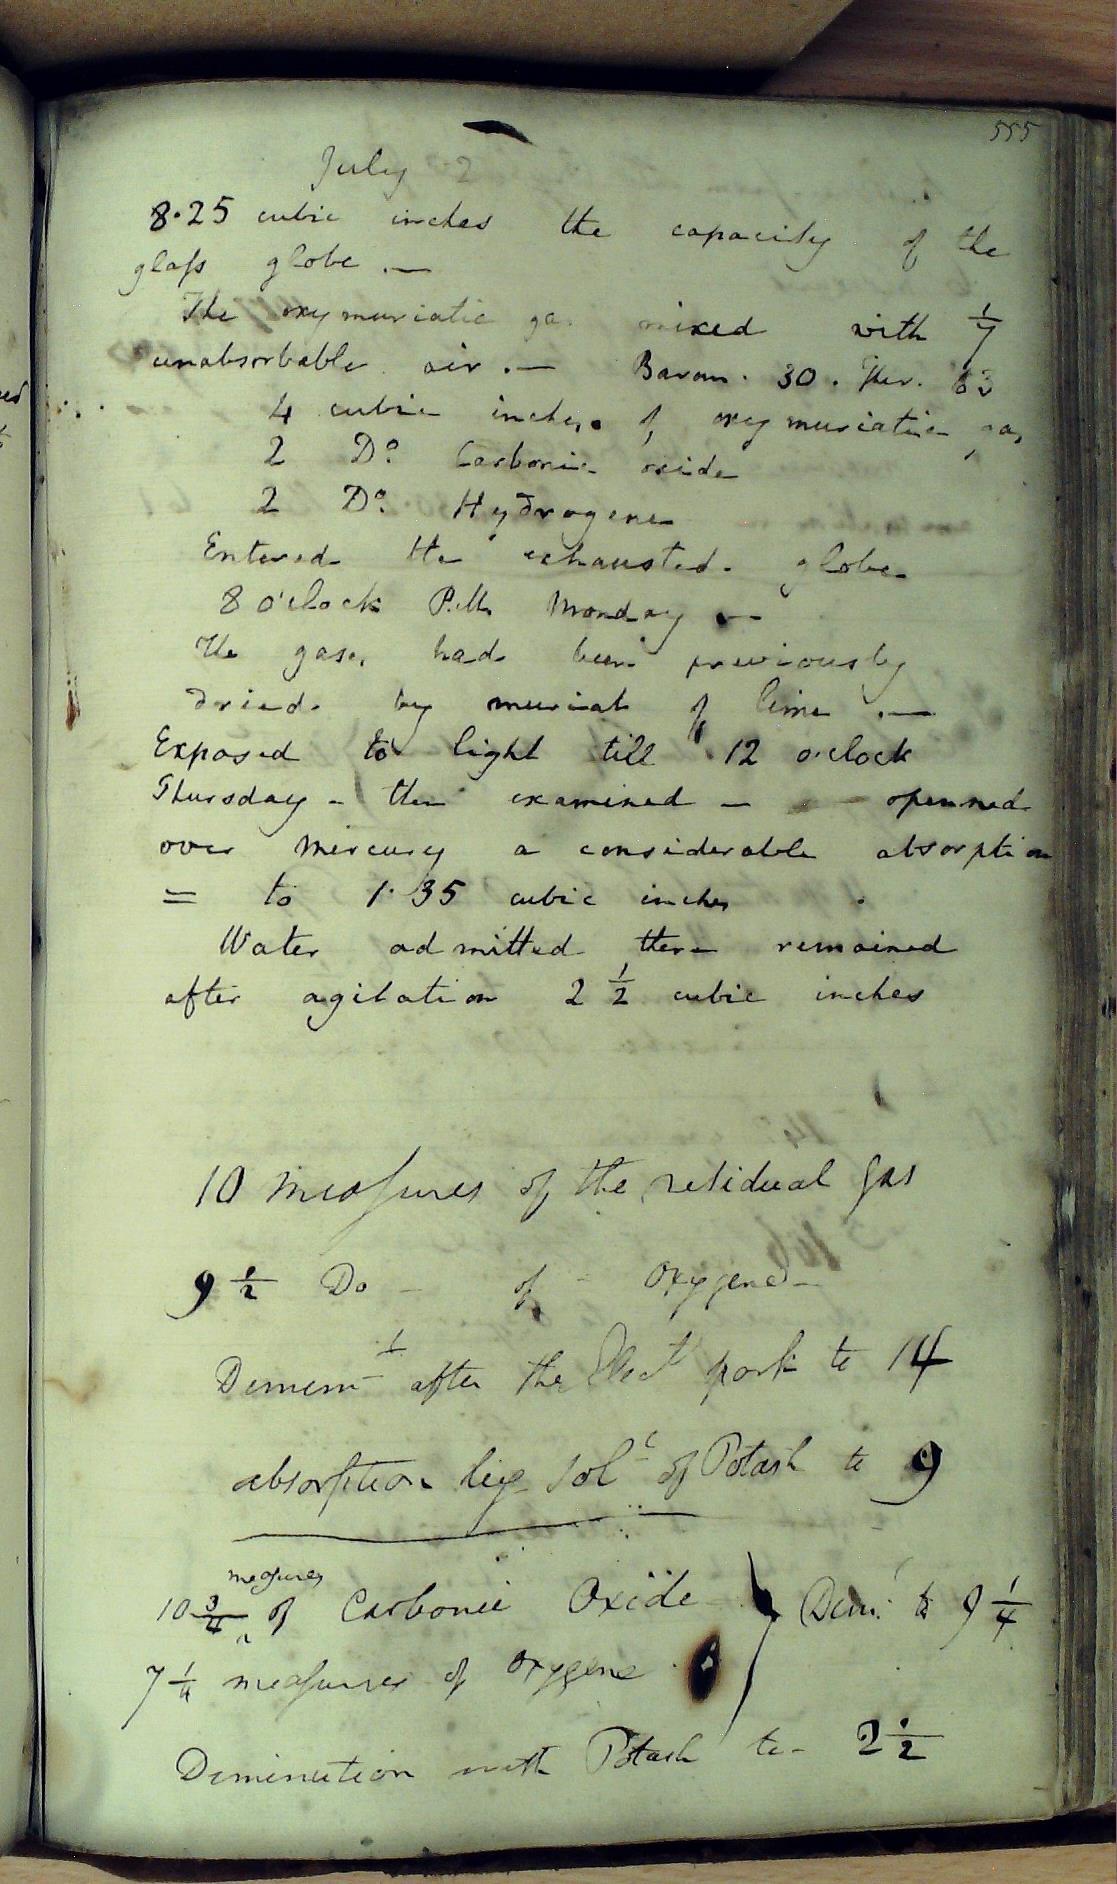 555
July 2
8.25 cubic inches the capacity of the
glaſs globe . —
The oxymuriatic gas mixed with 1/7
unabsorbable air . — Barom. 30 . Ther. 63
4 cubic inches of oxymuriatic gas
2 Do. Carbonic oxide
2 Do. Hydrogene
Entered the exhausted globe
8 o'clock P.M. Monday —
The gases had been previously
dried by muriate of lime . —
Exposed to light till 12 o'clock
Thursday - then examined — openned
over mercury a considerable absorption
= to 1.35 cubic inches
Water admitted there remained
after agitation 2 1/2 cubic inches
10 meaſures of the residual gas
9 1/2 Do - of - Oxygene -
Dimin.t after the Elect spark to 14
absorption by sol of Potash to 9
measures
10 3/4 ^ of Carbonic Oxide } Dim. to 9 1/4
7 1/4 meaſures of oxygene
Diminution with Potash to - 2 1/2